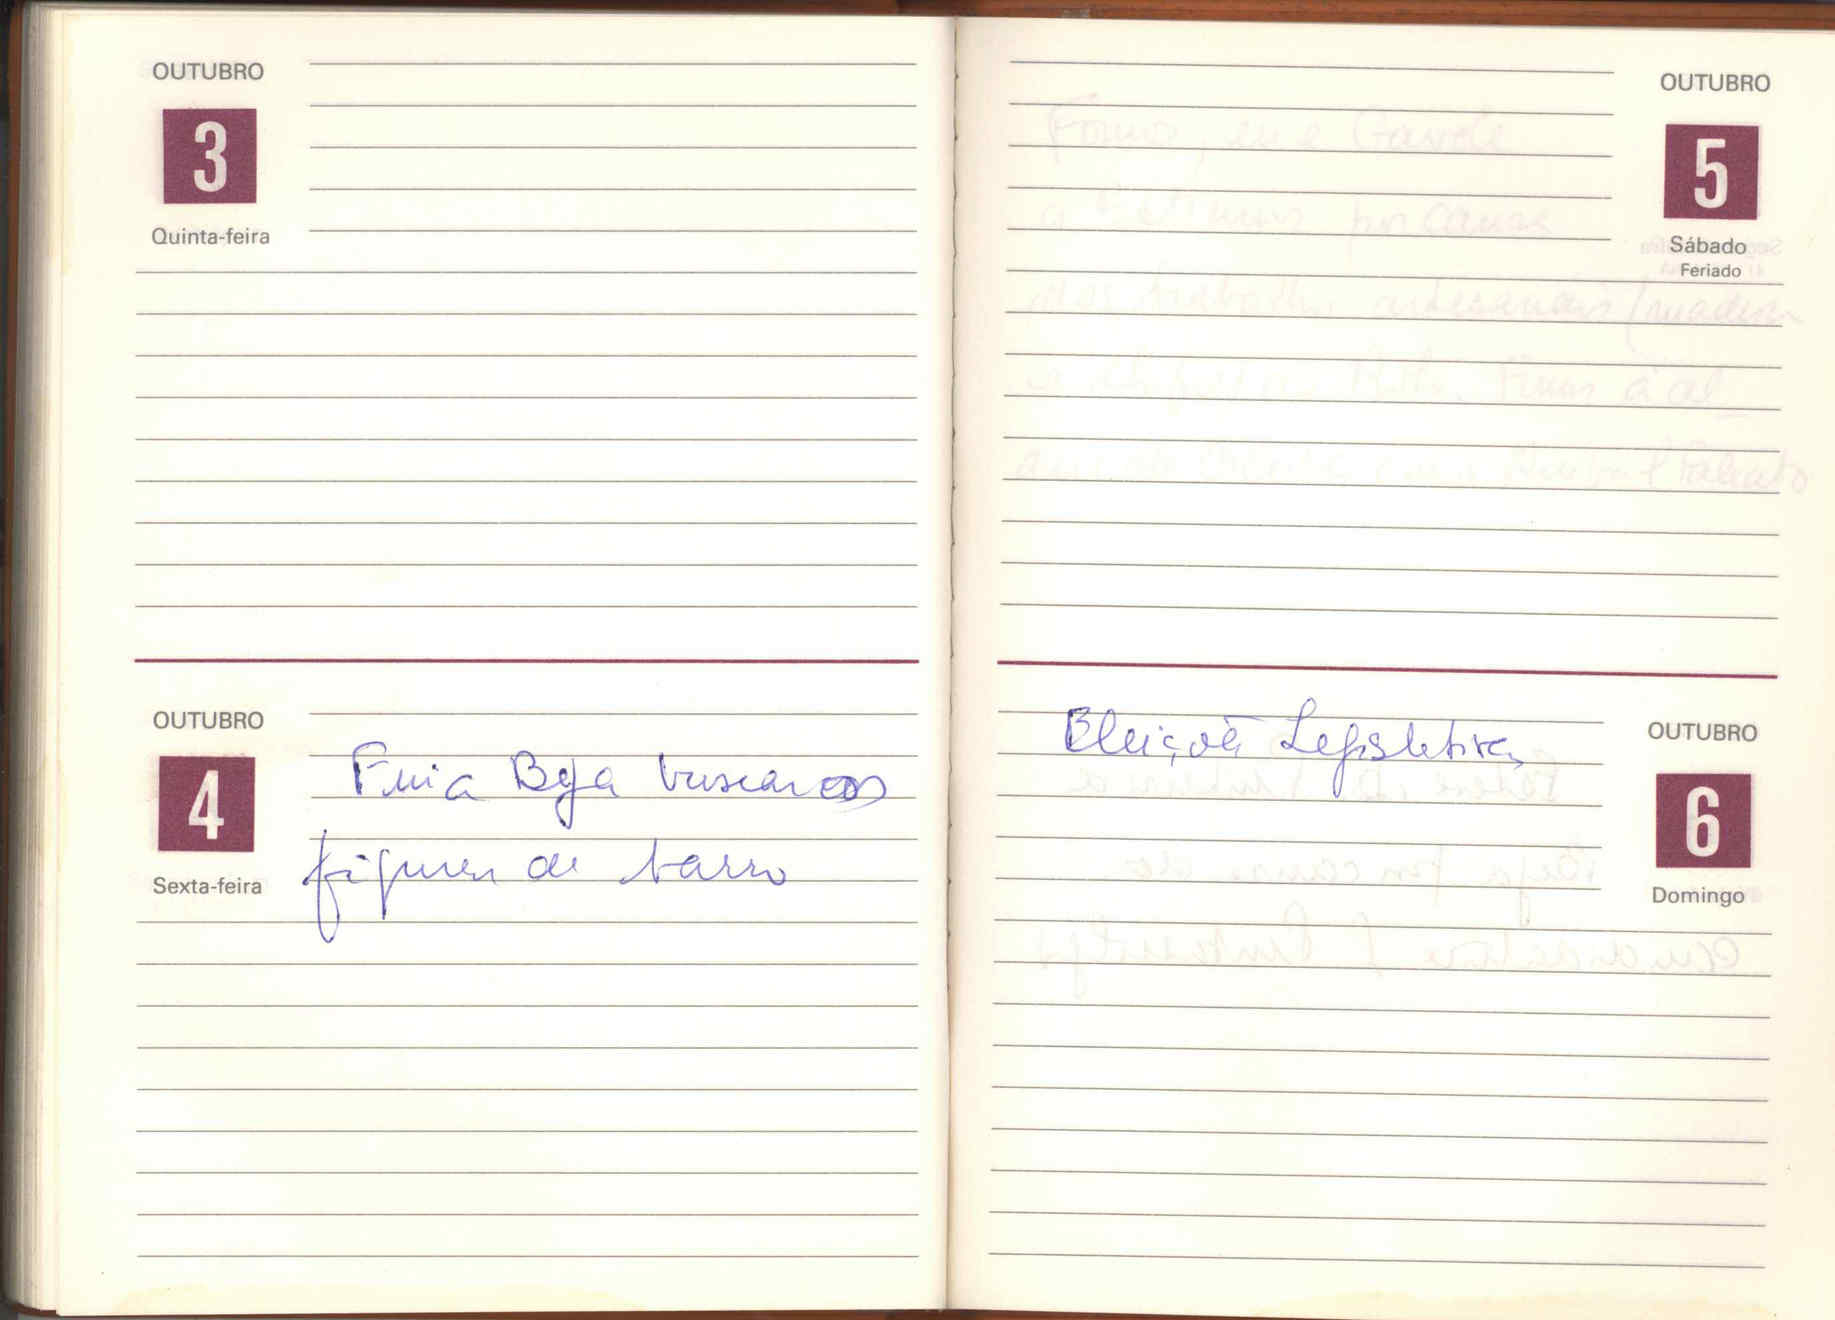 OUTUBRO
3
Quinta-feira
OUTUBRO
4
Sexta-feira
Fui a Beja buscar os
figuras de barro
OUTUBRO
5
Sábado
Feriado
OUTUBRO
6
Domingo
Eleições Legislativas